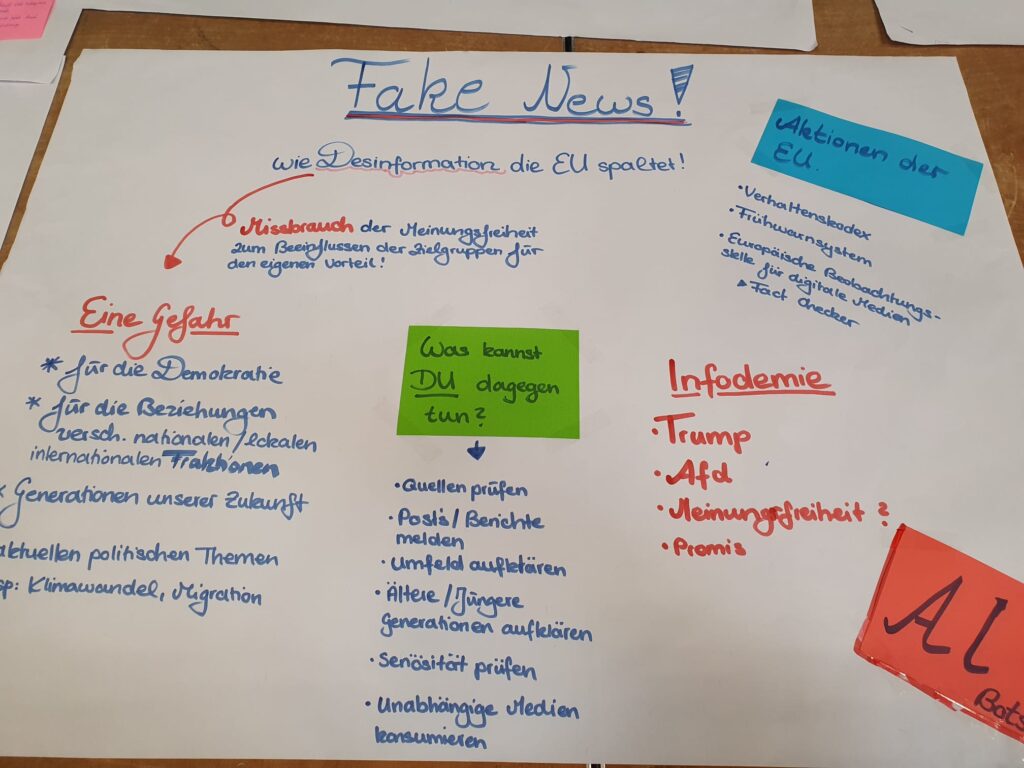 Fake News!
wie Desinformation die EU spaltet!
Missbrauch der Meinungsfreiheit
zum Beeinflussen der Zielgruppen für
den eigenen Vorteil!
Eine Gefahr
* für die Demokratie
* für die Beziehungen
versch. nationalen/lokalen
internationalen Fraktionen
* Generationen unserer Zukunft
aktuellen politischen Themen
sp: Klimawandel, Migration
Was kannst
DU dagegen
tun?
• Quellen prüfen
• Post's/Berichte
melden
• Umfeld aufklären
• Ältere/Jüngere
Generationen aufklären
• Seriösität prüfen
• Unabhängige Medien
konsumieren
Aktionen der
EU.
• Verhaltenskodex
• Frühwarnsystem
• Europäische Beobachtungs-
stelle für digitale Medien
▸ Fact Checker
Infodemie
• Trump
• Afd
• Meinungsfreiheit?
• Promis
AI
Bots